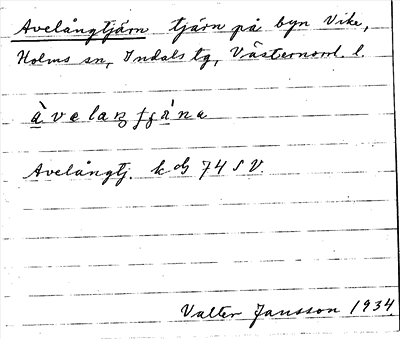 Avelångtjärn tjärn på byn Vike,
Holms sn, Indals tg, Västernorrl. l.
Avelångtj. kbl 74 SV.
Valter Jansson 1934